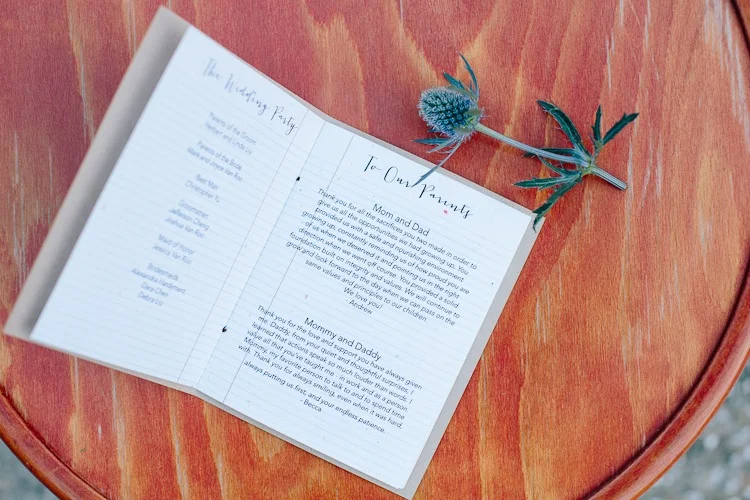 The Wedding Party
Parents of the Groom
Herbert and Linda Liu
Parents of the Bride
Mark and Joyce Van Roo
Best Man
Christopher Yu
Groomsmen
Jefferson Cheng
Joshua Van Roo
Maid of Honor
Jessica Van Roo
Bridesmaids
Alexandra Handyment
Clara Chen
Debra Liu
To Our Parents
Mom and Dad
Thank you for all the sacrifices you two made in order to
give us all the opportunities we had growing up. You
provided us with a safe and nourishing environment
growing up, constantly reminding us of how proud you are
of us when we deserved it and pointing us in the right
direction when we went off course. You provided a solid
foundation built on integrity and values. We will continue to
grow and look forward to the day when we can pass on the
same values and principles to our children.
We love you!
- Andrew
Mommy and Daddy
Thank you for the love and support you have always given
me. Daddy, from your quiet and thoughtful surprises, I
learned that actions speak so much louder than words. I
value all that you've taught me - in work and as a person.
Mommy, my favorite person to talk to and to spend time
with. Thank you for always smiling, even when it was hard,
always putting us first, and your endless patience.
- Becca